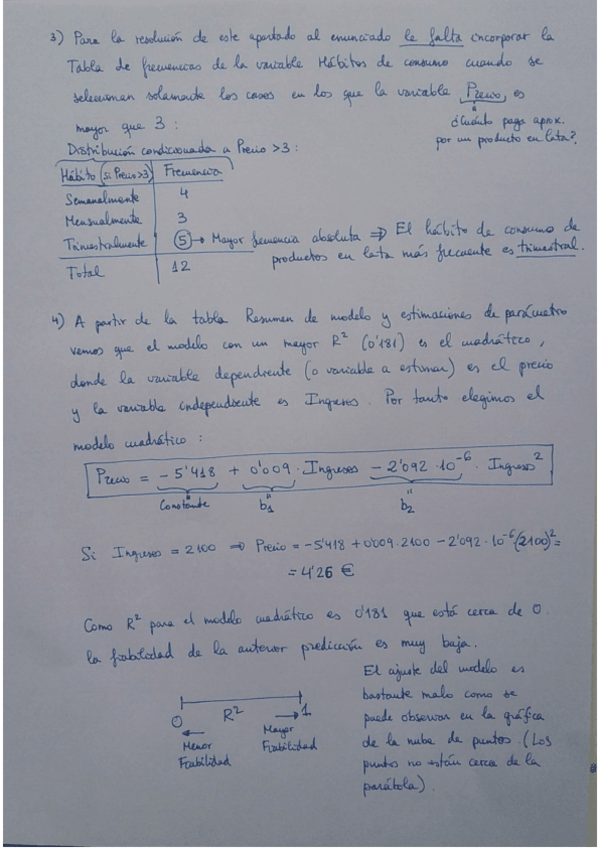 3) Para la resolución de este apartado al enunciado le falta incorporar la
Tabla de frecuencias de la variable Hábitos de consumo cuando se
seleccionan solamente los casos en los que la variable Precio es
mayor que 3 :
"
¿Cuánto paga aprox.
por un producto en lata?
Distribución condicionada a Precio >3 :
Hábito (si Precio>3) Frecuencia
Semanalmente 4
Mensualmente 3
Trimestralmente 5 → Mayor frecuencia absoluta ⇒ El hábito de consumo de
productos en lata más frecuente es trimestral.
Total 12
4) A partir de la tabla Resumen de modelo y estimaciones de parámetro
vemos que el modelo con un mayor R² (0'181) es el cuadrático,
donde la variable dependiente (o variable a estimar) es el precio
y la variable independiente es Ingresos. Por tanto elegimos el
modelo cuadrático :
Precio = - 5'418 + 0'009 · Ingresos - 2'092 · 10⁻⁶ · Ingreso²
" " "
Constante b₁ b₂
Si Ingresos = 2100 ⇒ Precio = -5'418 + 0'009·2100 - 2'092·10⁻⁶(2100)² =
= 4'26 €
Como R² para el modelo cuadrático es 0'181 que está cerca de 0.
la fiabilidad de la anterior predicción es muy baja.
0 R² 1
← Menor Fiabilidad
→ Mayor Fiabilidad
El ajuste del modelo es
bastante malo como se
puede observar en la gráfica
de la nube de puntos. (Los
puntos no están cerca de la
parábola).